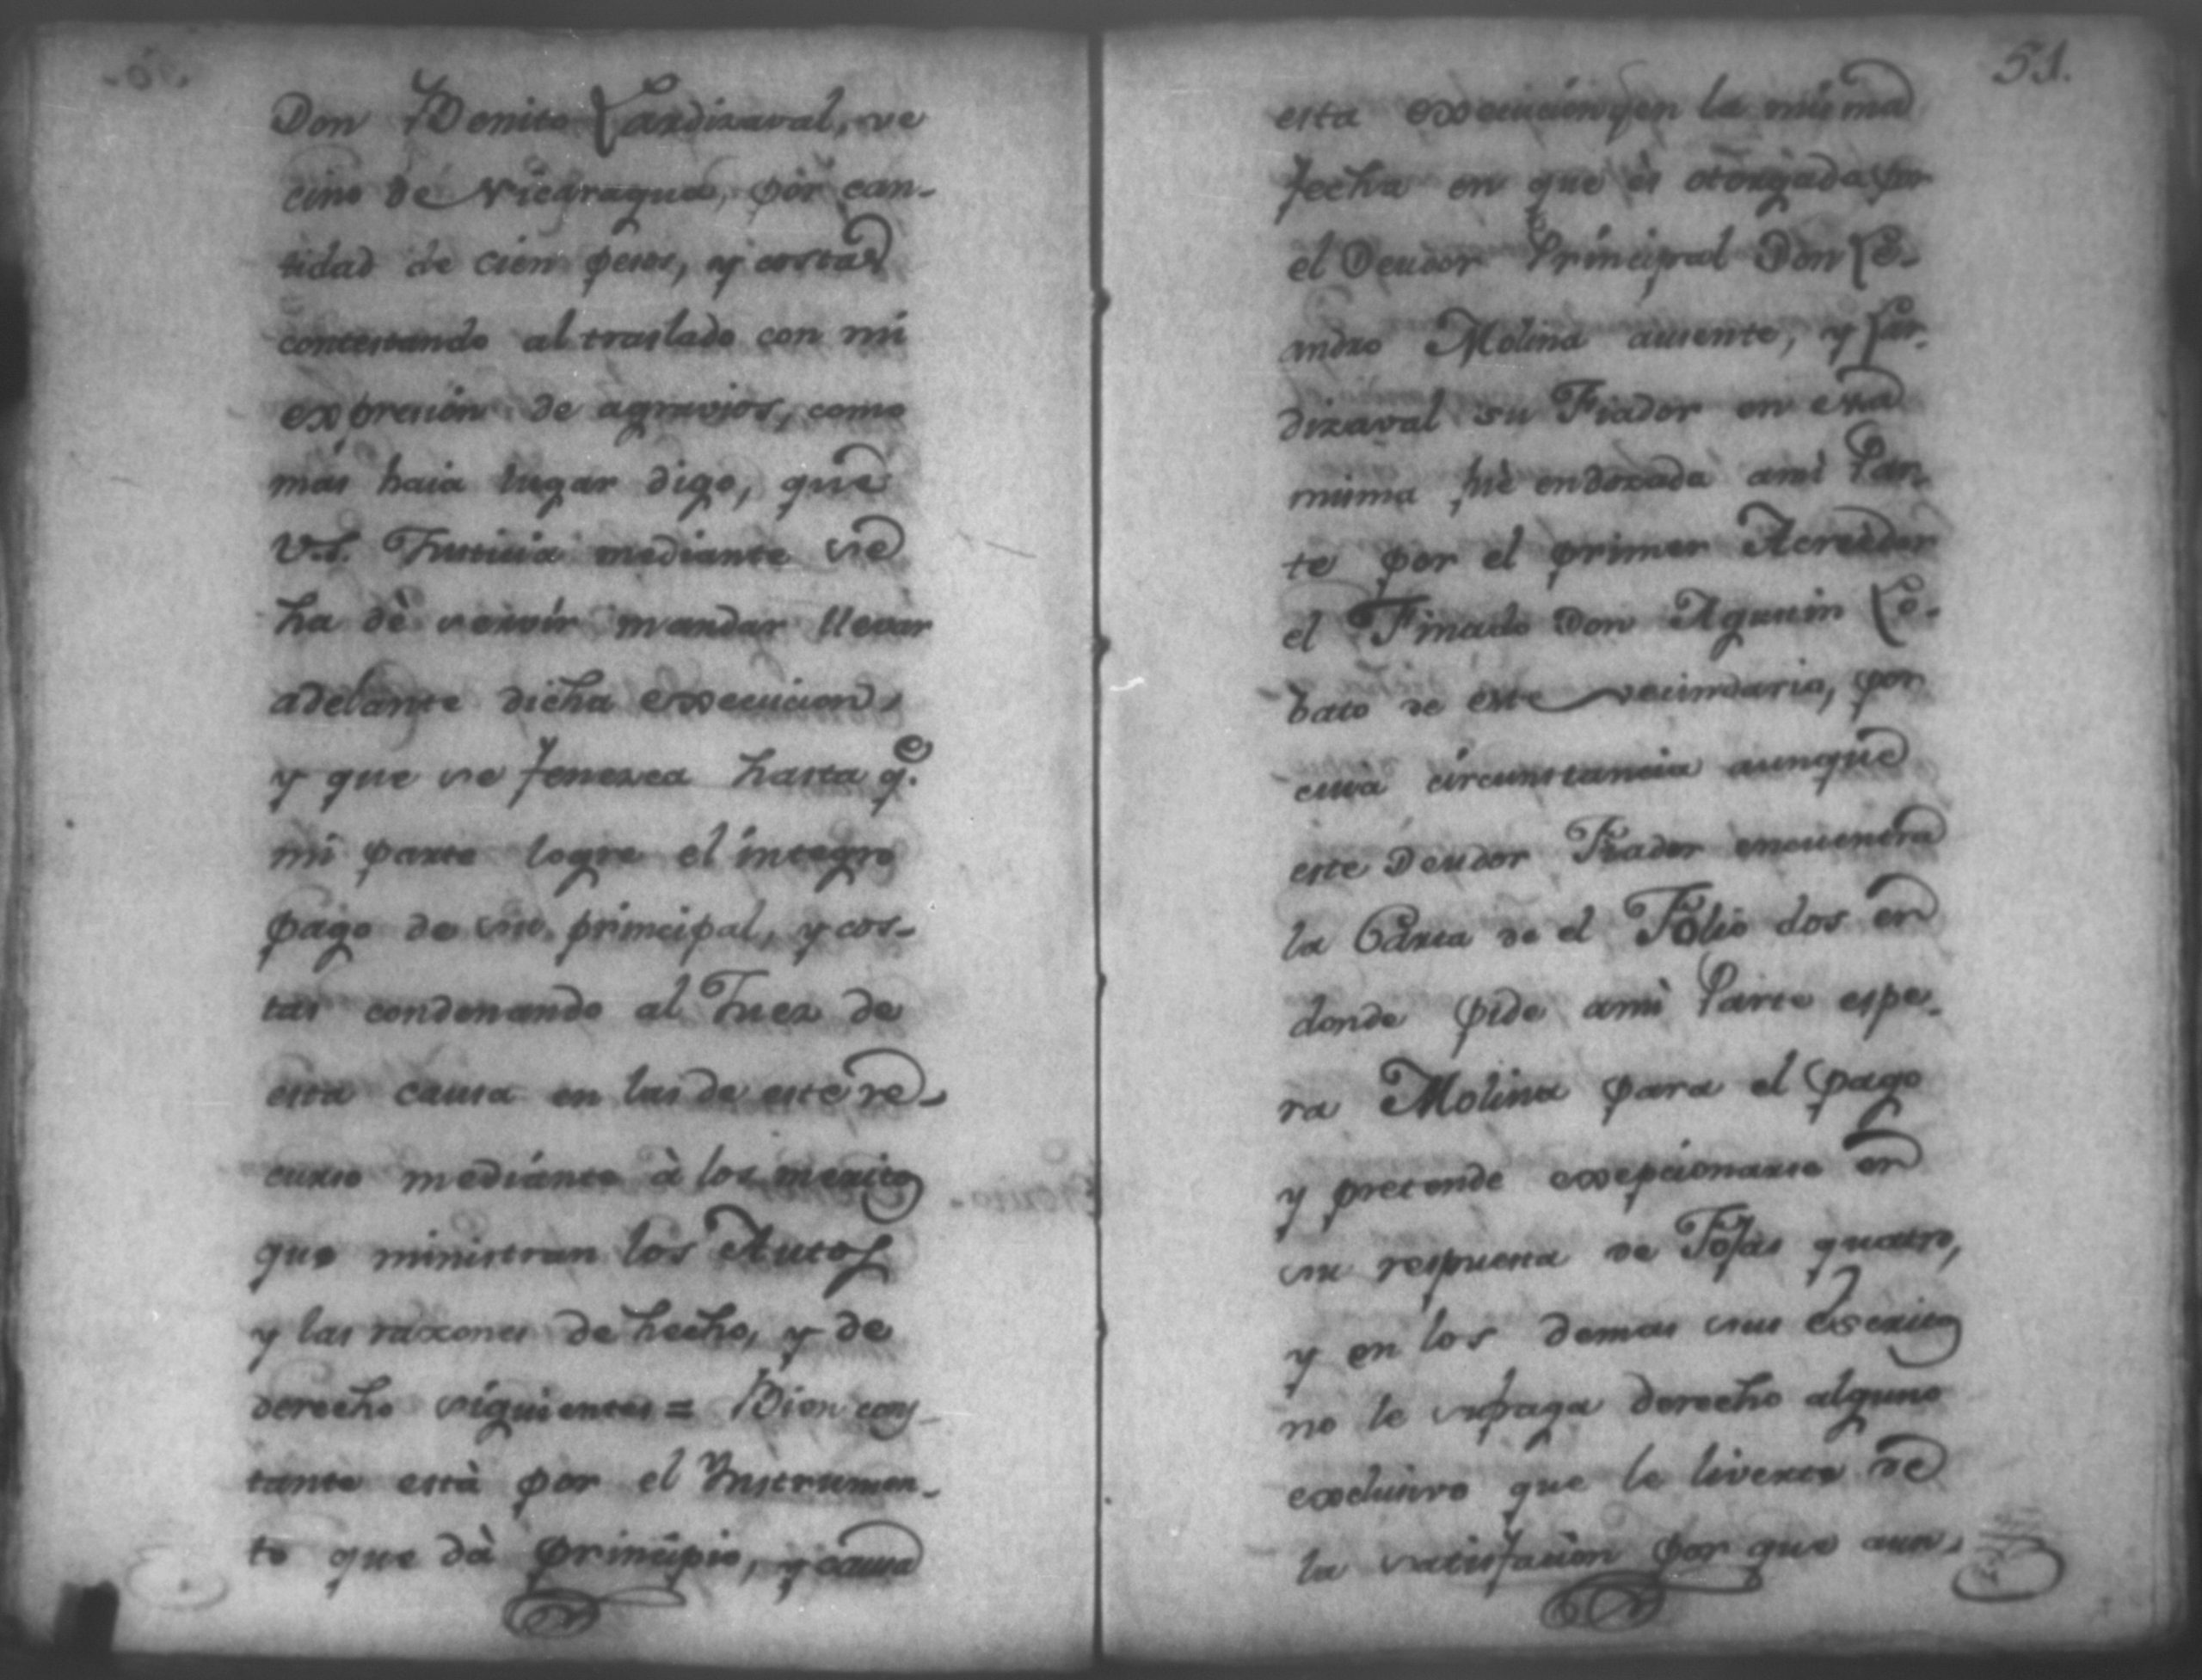 Don Benito Lardizaval, ve
cino de Nicaragua, por can-
tidad de cien pesos, y costas
contestando al traslado con mi
expresión de agravios, como
más haia lugar digo, que
V.S. Justicia mediante se
ha dè servír mandar llevar
adelante dicha execucion,
y que se fenezca hasta q.e
mi parte logre el íntegro
pago de su principal, y cos-
tas condenando al Juez de
esta causa en las de este re-
curso mediánte à los meritos
que ministran los Autos
y las razones de hecho, y de
derecho síguientes = Bien cons-
tante està por el Ynstrumen-
to que dà principio, y causa
51.
esta execución y en la mísma
fecha en que es otorgada por
el Deudor Príncipal Don Le-
andro Molina ausente, y Lar-
dizaval su Fiador en esta
misma fué endozada amí Par-
te por el primer Acreedor
el Finado Don Agustin Lo-
bato de este vecindario, por
cuia círcunstancia aunque
este Deudor Fiador encuentra
la Carta de el Folio dos en
donde pide amì Parte espe-
ra Molina para el pago
y pretende exepcionarse en
su respuesta de Fojas quatro,
y en los demas sus Escritos
no le sufraga derecho alguno
exclusivo que le liverte de
la satisfacion por que aun-